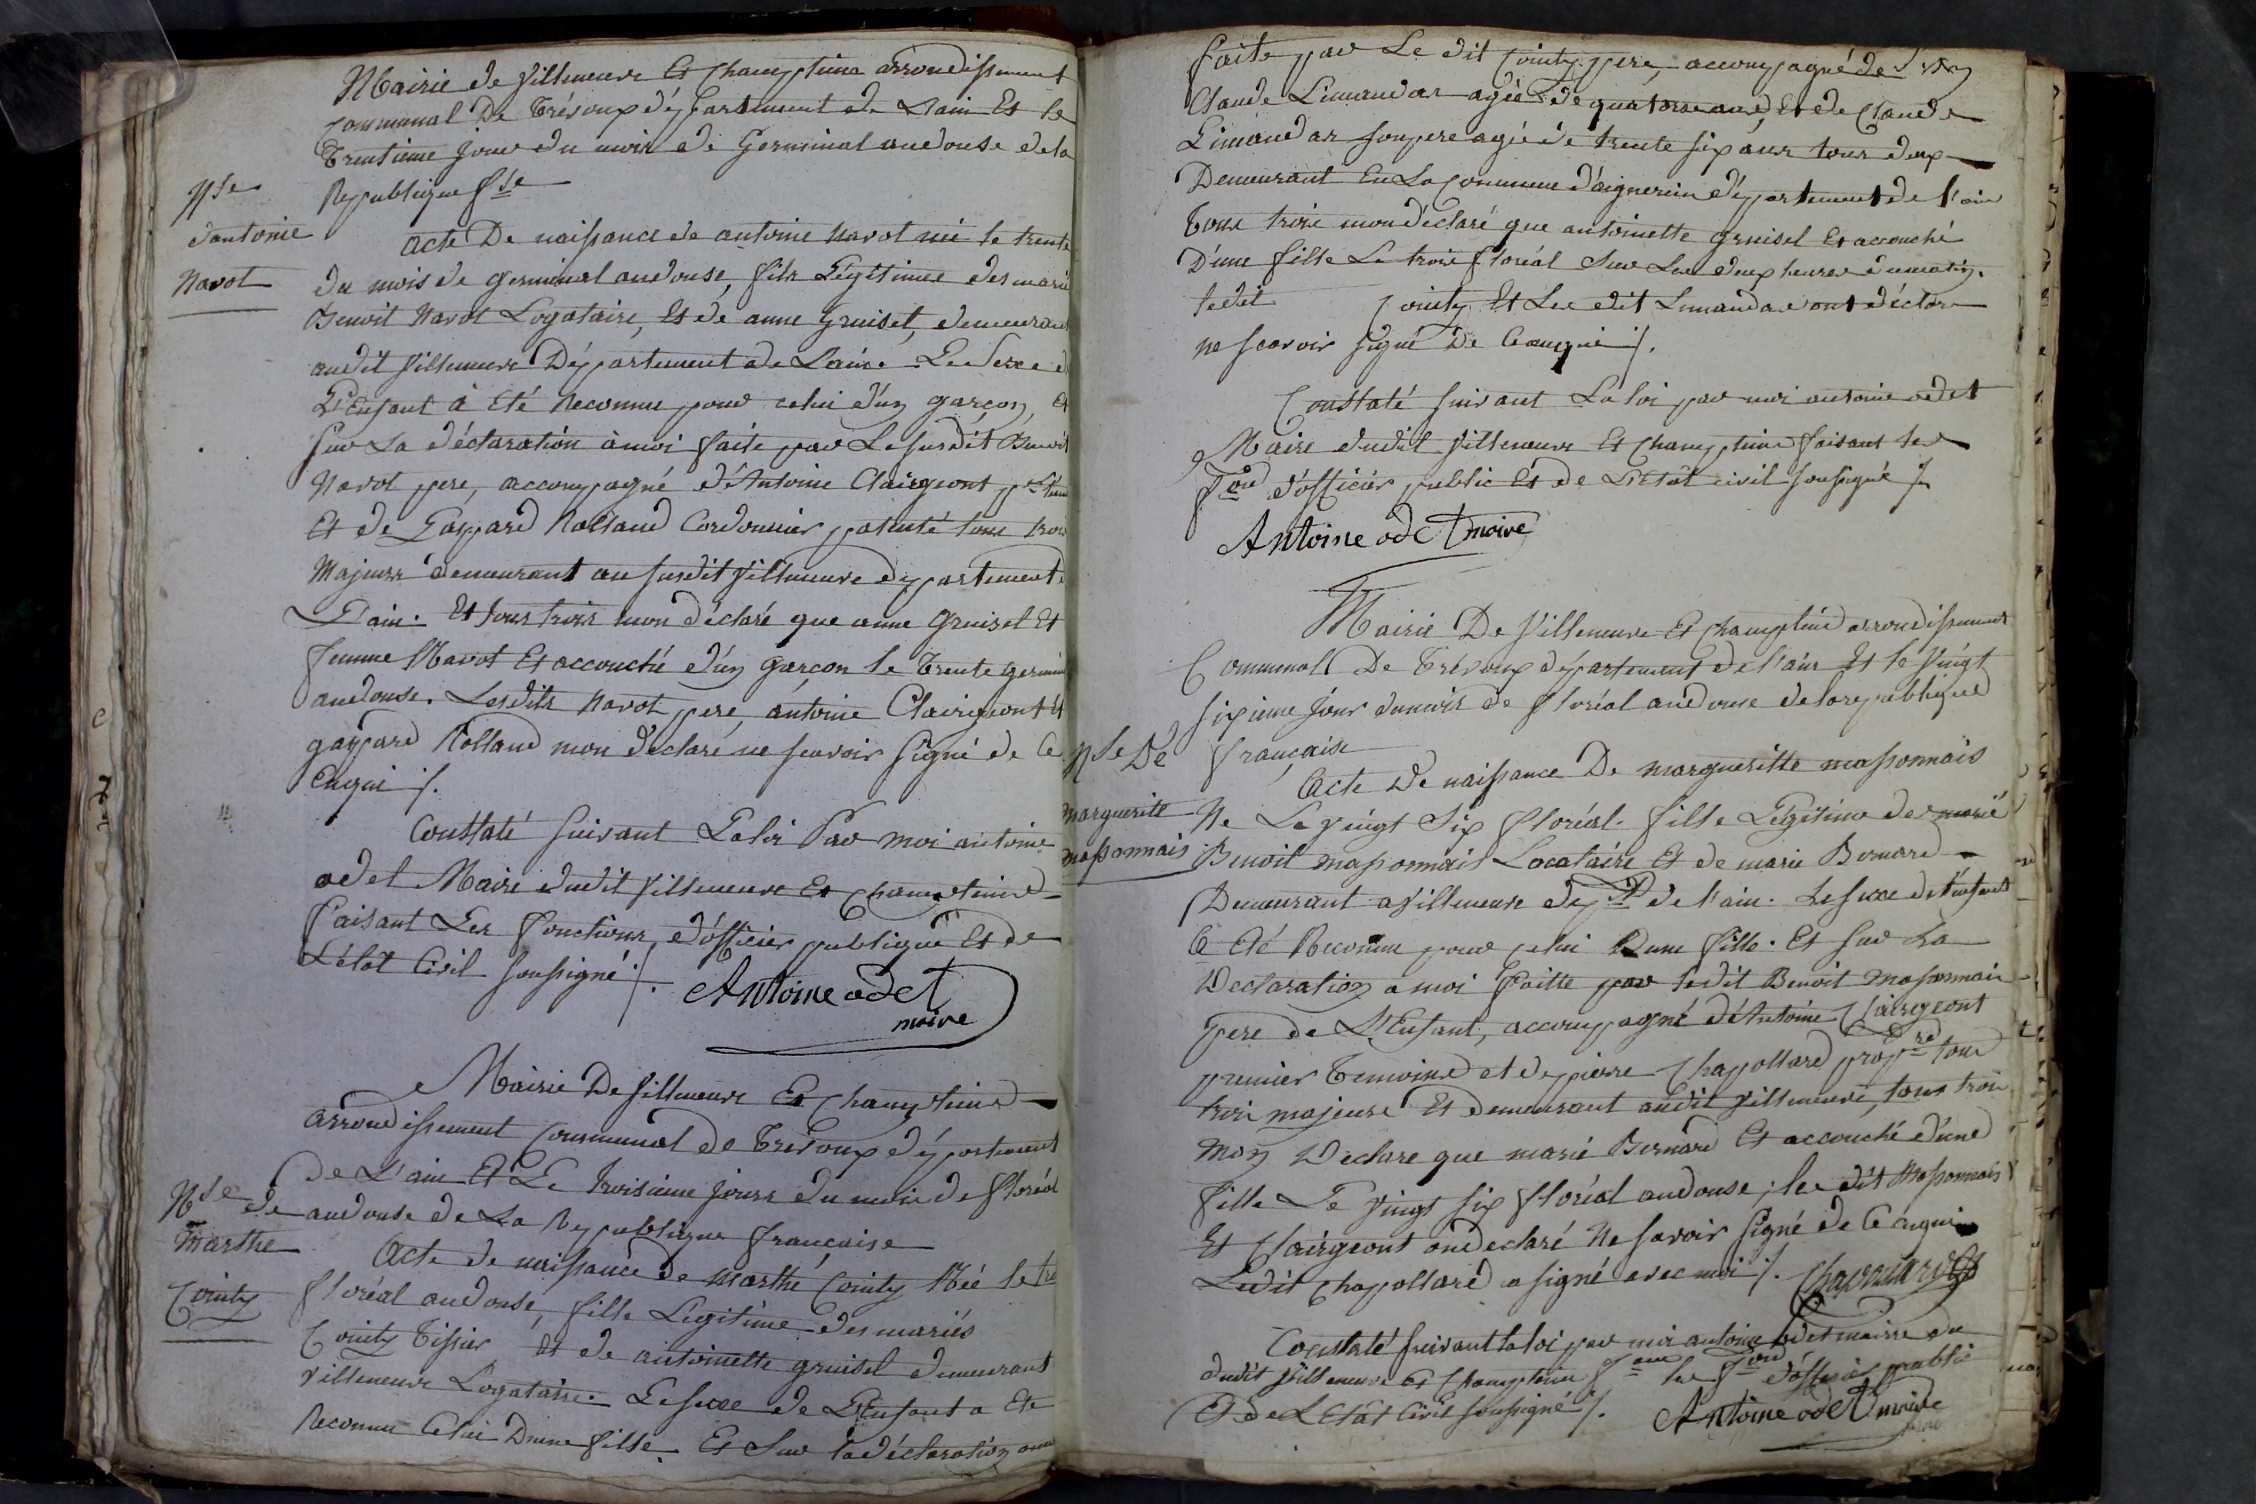 Mairie de Villeneuve Et Champteins arrondissement
Communal De Trévoux département de Lain Et le
Trentieme jour du mois de Germinal andouse dela
Republique fse
Nse
dantoine
Navot
Acte De naissance de antoine Navot née le trente
du mois de germinal andouse, fils Légitimes des marié
Benoit Navot Logataire, Et de anne gruisel, demeurant
audit Villeneuve Département de Lain. Le Sexe d
L'Enfant à Eté Reconnu pour celui d'un garçon, Et
Sur La déclaration à moi faite par Le susdit Benoit
Navot pere, accompagné d'Antoine Clairgeont
Et de Gaspard Rolland Cordonnier patenté tous trois
Majeurs demeurant au susdit Villeneuve département
Lain. Et tous trois mon déclaré que anne Gruisel Et
femme Navot Et accouché d'un garçon le Trente germinal
andouse. Lesdits Navot pere, antoine Clairgeont Et
gaspard Rolland mon déclaré ne scavoir Signé de Ce
Enquis ⁒
Constaté suivant Laloi Par moi antoine
odet Maire dudit Villeneuve Et Champteins
faisant Les fonctions d'officier publique Et de
Létat Civil soussigné ⁒ Antoine odet
maire
Mairie De Villeneuve Et Champteins
arrondissement Communal de Trévoux département
de L'ain Et Le troisieme jours du mois de floréal
andouse de La Republique française
Nse de
Marthe
Cointy
Acte de naissance de Marthe Cointy Née le tr
floréal andouse, fille Légitime des mariés
Cointy Tissier Et de antoinette gruisel demeurant
Villeneuve Logataire. Le sexe de L'Enfant a Eté
Reconnu Celui Dune fille. Et Sur la déclaration a moi
faite par Le dit Cointy pere, accompagné de
Claude Limandas agée de quatorse ans, Et de Claude
Limandas son pere agé de trente six ans tous deux
Demeurant En La Commune d'aignerein département de l'ain
Tous trois mon déclaré que antoinette gruisel Et accouché
D'une fille Le trois floréal Sur Les deux heures du matin.
Ledit Cointy Et Les dit Limandas ont déclare
ne scavoir signé De Ceenquis ⁒
Constaté suivant La loi par moi antoine odet
Maire dudit Villeneuve Et Champteins faisant les
fon d'officier public Et de L'Etât civil soussigné ⁒
Antoine odet maire
Mairie De Villeneuve Et Champteins arrondissement
Communal De Trévoux département de l'ain Et le Vingt
sixieme jour du mois de floréal andouse de la republique
française
Nse De
marguerite
massonnais
Acte de naissance De margueritte massonnais
Ne Le Vingt Six floréal. fille Légitime des marié
Benoit massonnais Locataire Et de marie Bernard
Demeurant a Villeneuve dept de l'ain. Le sexe de l'enfant
Eté Reconnu pour celui Dune fille. Et sur La
Declaration a moi faitte par ledit Benoit massonnais
pere de L'Enfant, accompagné d'Antoine Clairgeont
premier Temoins et de pierre Chapollard propre tous
trois majeurs Et demeurant audit Villeneuve, tous trois
Mon Declare que marie Bernard Et accouché d'une
fille Le Vingt six floréal andouse; Les dit Massonnais
Et Clairgeont on déclaré Ne savoir signé de Ce Enquis
Ledit Chapollard a signé avec moi ⁒ Chapollard
Constaté suivant la loi par moi antoine odet maire du
dudit Villeneuve Et Champteins les fon d'officier public
Et de L'Etât Civil soussigné ⁒ Antoine odet maire